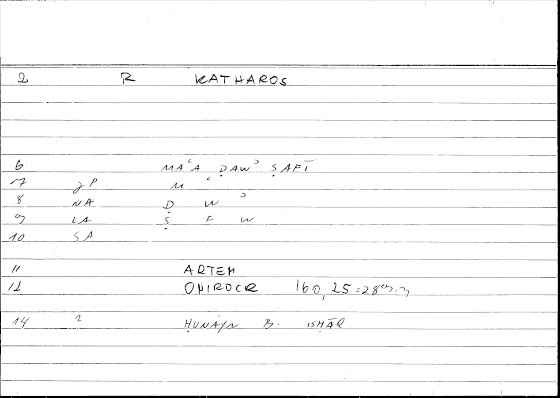 2 R KATHAROS
6 MAʿA ḌAWʾ ṢAFĪ
7 γP M ʿ
8 NA Ḍ W ʾ
9 LA Ṣ F W
10 SA
11 ARTEM
12 ONIROCR 160, 25 = 28
14 2 ḤUNAYN B. ISḤĀQ